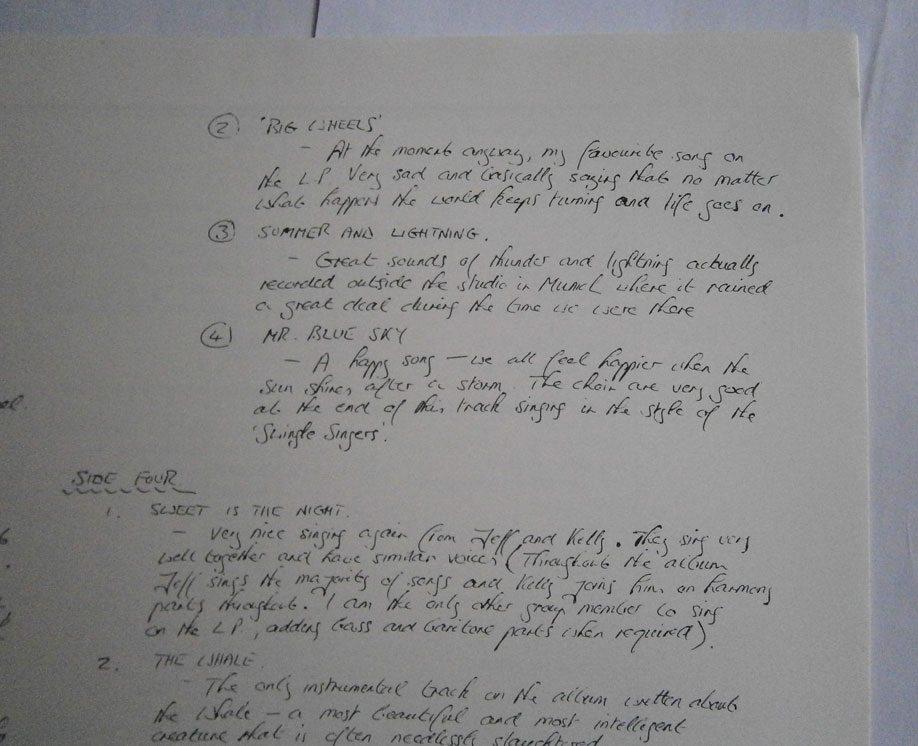 ② 'BIG WHEELS'
– At the moment anyway, my favourite song on
the LP Very sad and basically saying that no matter
what happens the world keeps turning and life goes on.
③ SUMMER AND LIGHTNING.
– Great sounds of thunder and lightning actually
recorded outside the studio in Munich where it rained
a great deal during the time we were there
④ MR. BLUE SKY
– A happy song – we all feel happier when the
sun shines after a storm. The choir are very good
at the end of this track singing in the style of the
'Swingle Singers'.
SIDE FOUR
1. SWEET IS THE NIGHT.
– Very nice singing again from Jeff and Kelly. They sing very
well together and have similar voices (Throughout the album
Jeff sings the majority of songs and Kelly joins him on harmony
parts throughout. I am the only other group member to sing
on the LP, adding bass and baritone parts when required).
2. THE WHALE.
– The only instrumental track on the album written about
the whale – a most beautiful and most intelligent
creature that is often needlessly slaughtered